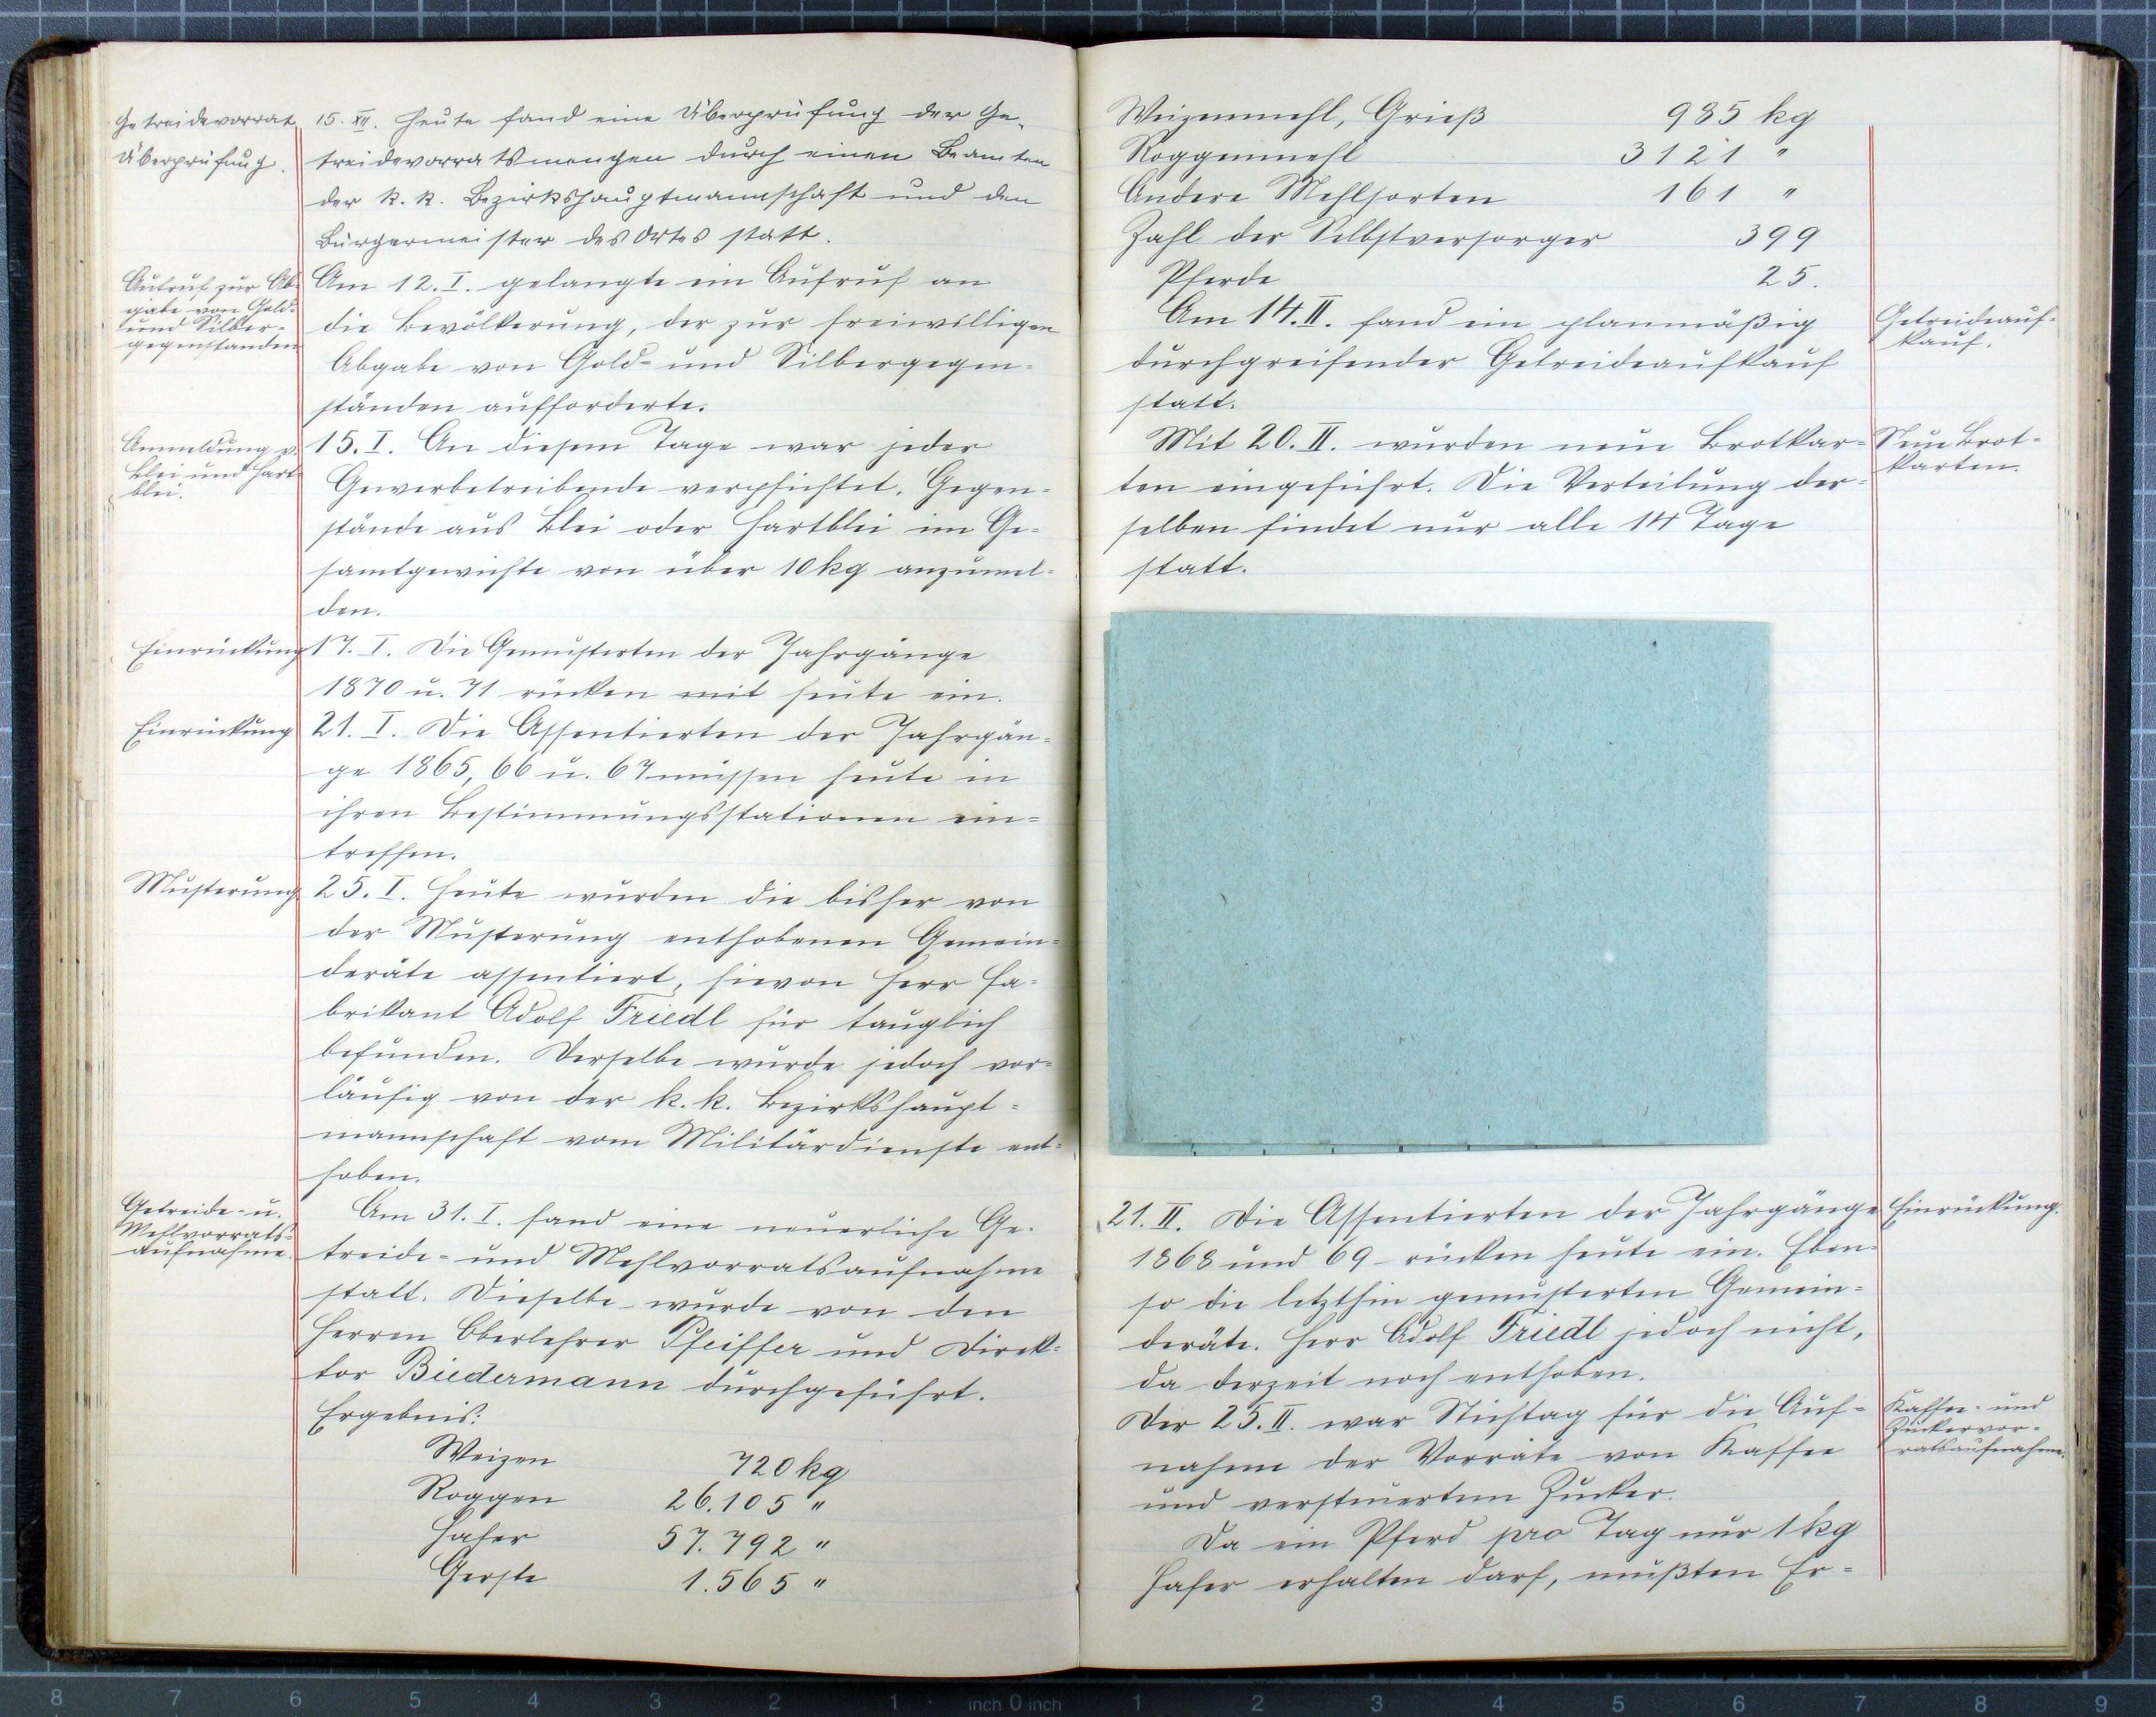 Getreidevorrat
Überprüfung.
15. XII. Heute fand eine Überprüfung der Ge-
treidevorratsmengen durch einen Beamten
der k. k. Bezirkshauptmannschaft und den
Bürgermeister des Ortes statt.
Aufruf zur Ab-
gabe von Gold-
und Silber-
gegenständen
Am 12. I. gelangte ein Aufruf an
die Bevölkerung, der zur freiwilligen
Abgabe von Gold- und Silbergegen-
ständen aufforderte.
Anmeldung v.
Blei und Hart-
blei.
15. I. An diesem Tage war jeder
Gewerbetreibende verpflichtet, Gegen-
stände aus Blei oder Hartblei im Ge-
samtgewichte von über 10 kg anzumel-
den.
Einrückung
17. I. Die Gemusterten der Jahrgänge
1870 u. 71 rücken mit heute ein.
Einrückung
21. I. Die Assentierten der Jahrgän-
ge 1865, 66 u. 67 müssen heute in
ihren Bestimmungsstationen ein-
treffen.
Musterung.
25. I. Heute wurden die bisher von
der Musterung enthobenen Gemein-
deräte assentiert, hievon Herr Fa-
brikant Adolf Friedl für tauglich
befunden. Derselbe wurde jedoch vor-
läufig von der k. k. Bezirkshaupt-
mannschaft vom Militärdienste ent-
hoben.
Getreide- u.
Mehlvorrats-
aufnahme.
Am 31. I. fand eine neuerliche Ge-
treide- und Mehlvorratsaufnahme
statt. Dieselbe wurde von den
Herren Oberlehrer Pfeiffer und Direk-
tor Biedermann durchgeführt.
Ergebnis:
Weizen 720 kg
Roggen 26.105 "
Hafer 57.792 "
Gerste 1.565 "
Weizenmehl, Grieß 985 kg
Roggenmehl 3121 "
Andere Mehlsorten 161 "
Zahl der Selbstversorger 399
Pferde 25.
Am 14. II. fand ein planmäßig
durchgreifender Getreideaufkauf
statt.
Getreideauf-
kauf.
Mit 20. II. wurden neue Brotkar-
ten eingeführt. Die Verteilung der-
selben findet nur alle 14 Tage
statt.
Neue Brot-
karten.
21. II. Die Assentierten der Jahrgänge
1868 und 69 rücken heute ein. Eben-
so die letzthin gemusterten Gemein-
deräte. Herr Adolf Friedl jedoch nicht,
da derzeit noch enthoben.
Einrückung.
Der 25. II. war Stichtag für die Auf-
nahme der Vorräte von Kaffee
und versteuertem Zucker.
Kaffee- und
Zuckervor-
ratsaufnahme.
Da ein Pferd pro Tag nur 1 kg
Hafer erhalten darf, mußten Er-
8 7 6 5 4 3 2 1 inch 0 inch 1 2 3 4 5 6 7 8 9